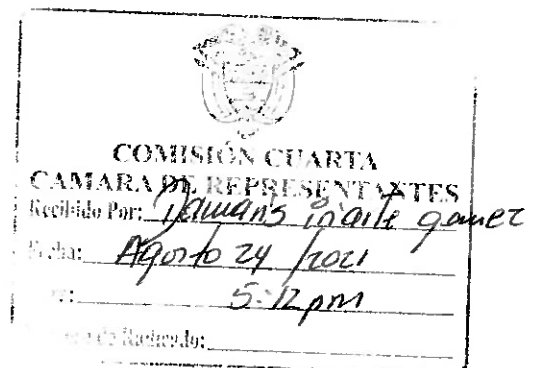 COMISIÓN CUARTA
CAMARA DE REPRESENTANTES
Recibido Por: Damaris iriarte gomez
Fecha: Agosto 24 /2021
5:12 pm
de Radicado: